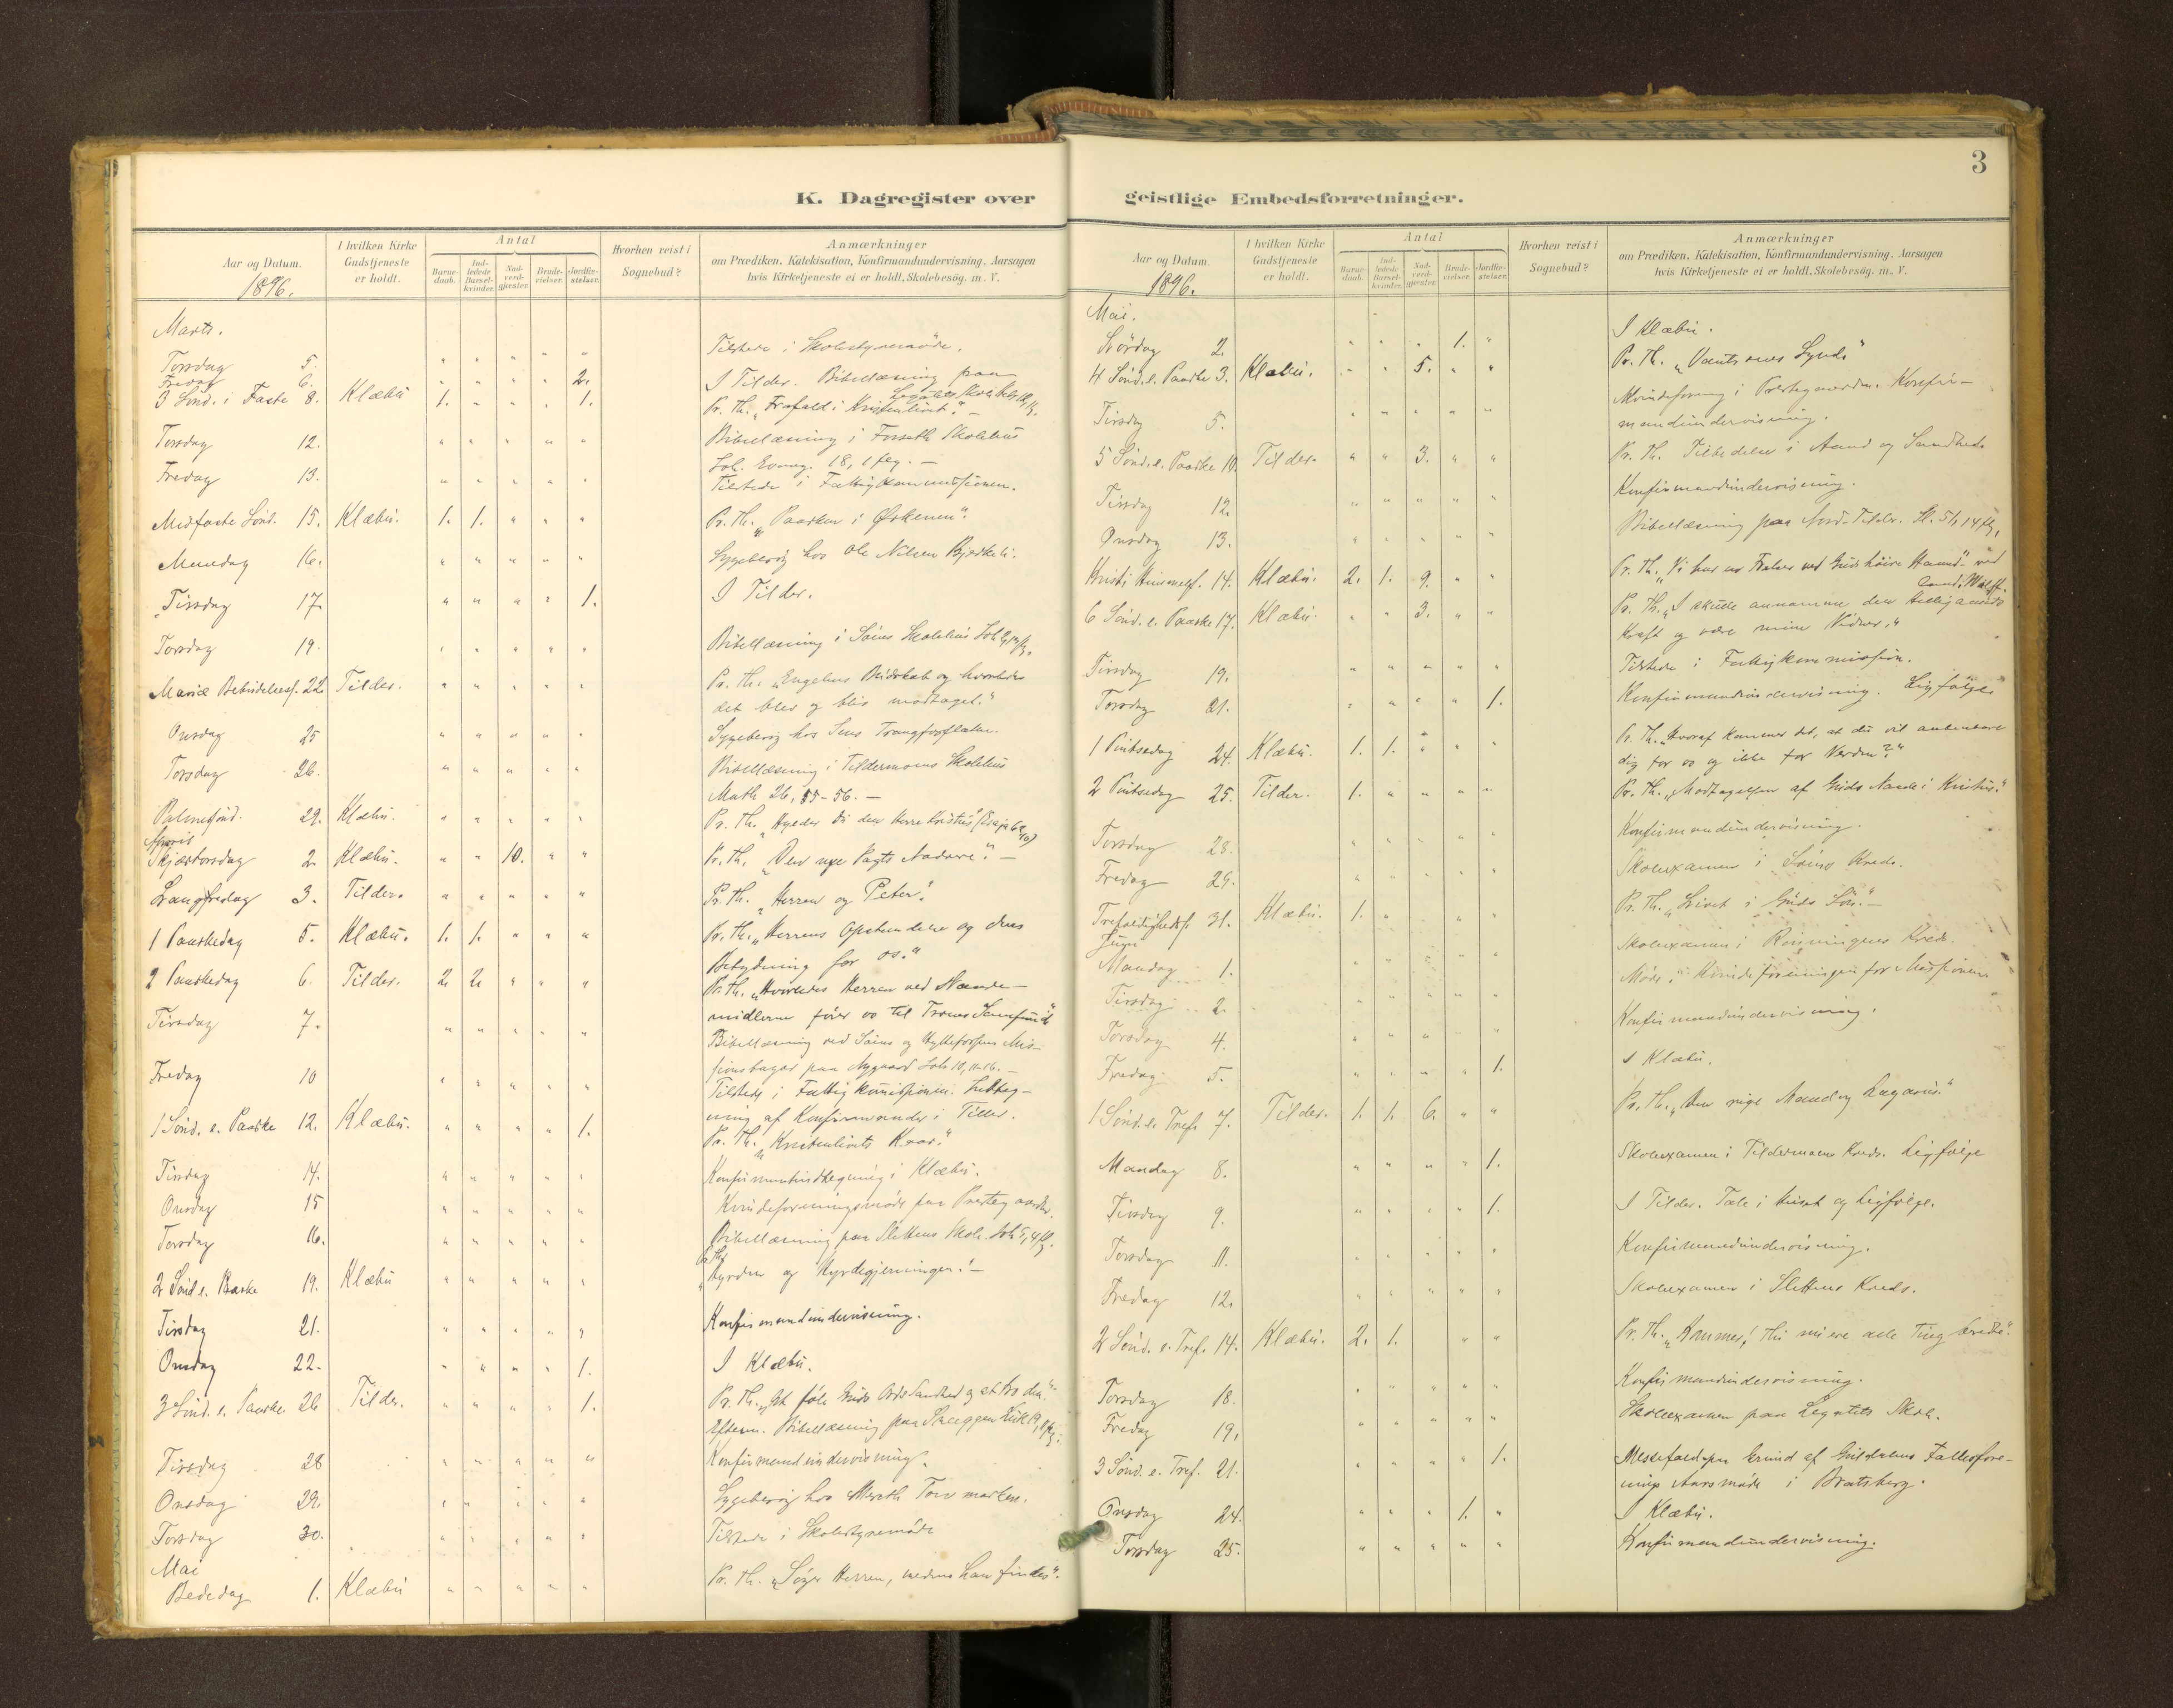 3
K. Dagregister over geistlige Embedsforretninger.
Aar og Datum. 1896.
I hvilken Kirke Gudstjeneste er holdt.
Antal
Barnedaab.
Indledede Barselkvinder.
Nadverdgjæster.
Brudevielser.
Jordfæstelser.
Hvorhen reist i Sognebud?
Anmærkninger
om Prædiken, Katekisation, Konfirmandundervisning, Aarsagen
hvis Kirketjeneste ei er holdt, Skolebesög. m. V.
Marts.
Torsdag 5. " " " " " Tilstede i Skolestyremöde.
Fredag 6. " " " " 2. I Tilder. Bibellæsning paa
3 Sönd. i Faste 8. Klæbu 1. " " " 1. Pr. Th. "Frafald i Kristenlivet." –
Torsdag 12. " " " " " Bibellæsning i Forseth Skolehus
Joh. Evang. 18, 1 flg. –
Fredag 13. " " " " " Tilstede i Fattigkommissionen.
Midfaste Sönd. 15. Klæbu. 1. 1. " " " Pr. Th. "Paasken i Ørkenen".
Mandag 16. " " " " " Sygebesög hos Ole Nilsen Bjerkeli.
Tirsdag 17. " " " " 1. I Tilder.
Torsdag 19. " " " " " Bibellæsning i Skolehus
Mariæ Bebudelsesf. 22. Tilder. " " " " " Pr. Th. "Engelens Budskab og hvorledes
det blev og blir modtaget."
Onsdag 25 " " " " " Sygebesög hos Jens
Torsdag 26. " " " " " Bibellæsning i Tildermoens Skolehus
Math 26, 55-56. –
Palmesönd. 29. Klæbu. " " " " " Pr. Th. "Hyeder du den Herre Kristus"
April
Skjærtorsdag 2. Klæbu. " " 10. " " Pr. Th. "Den nye Pagts Nadvere". –
Langfredag 3. Tilder. " " " " " Pr. Th. "Herren og Peter".
1 Paaskedag 5. Klæbu. 1. 1. " " " Pr. Th. "Herrens Opstandelse og dens
Betydning for os."
2 Paaskedag 6. Tilder. 2. 2. " " " Pr. Th. "Hvorledes Herren ved Naade-
midlerne förer os til Troens Samfund"
Tirsdag 7. " " " " " Bibellæsning ved og Hyttefossens Mis-
paa Nygaard Joh 10, 11-16. –
Fredag 10 " " " " " Tilstede i Fattigkommissionen. Indteg-
ning af Konfirmander i Tiller.
1 Sönd. e. Paaske 12. Klæbu. " " " " 1. Pr. Th. "Kristenlivets Krav."
Tirsdag 14. " " " " " Konfirmantindtegning i Klæbu.
Onsdag 15 " " " " " Kvindeforeningsmöde paa Prestegaarden.
Torsdag 16. " " " " " Bibellæsning paa Slettens Skole.
Pr. Th.
2 Sönd e. Paaske 19. Klæbu " " " " " "Hyrden og Hyrdegjerningen". –
Tirsdag 21. " " " " " Konfirmandundervisning.
Onsdag 22. " " " " 1. I Klæbu.
3 Sönd. e. Paaske 26 Tilder. " " " " 1. Pr. Th. "At föle Guds Ords Sandhed og at tro den."
Eftern. Bibellæsning paa
Tirsdag 28 " " " " " Konfirmandundervisning.
Onsdag 29. " " " " " Sygebesög hos
Torsdag 30. " " " " " Tilstede i Skolestyremöde
Mai
Bededag 1. Klæbu " " " " " Pr. Th. "Söger Herren, medens han findes".
Aar og Datum. 1896.
I hvilken Kirke Gudstjeneste er holdt.
Antal
Barnedaab.
Indledede Barselkvinder.
Nadverdgjæster.
Brudevielser.
Jordfæstelser.
Hvorhen reist i Sognebud?
Anmærkninger
om Prædiken, Katekisation, Konfirmandundervisning, Aarsagen
hvis Kirketjeneste ei er holdt, Skolebesög. m. V.
Mai.
Lördag 2. " " " 1. " I Klæbu.
4 Sönd. e. Paaske 3. Klæbu. " " 5. " " Pr. Th. "Vantroens Synd."
Tirsdag 5. " " " " " Kvindeforening i Prestegaarden. Konfir-
mandundervisning.
5 Sönd. e. Paaske 10. Tilder. " " 3. " " Pr. Th. Tilbedelse i Aand og Sandhed.
Tirsdag 12. " " " " " Konfirmandundervisning.
Onsdag 13. " " " " " Bibellæsning paa Nord-Tilder.
Kristi Himmelf. 14. Klæbu. 2. 1. 9. " " Pr. Th. "Vi har en Frelser ved Guds höire Haand" ved
cand. Wulff.
6 Sönd. e. Paaske 17. Klæbu. " " 3. " " Pr. Th. "I skulle annamme den Helligaands
Kraft og være mine Vidner."
Tirsdag 19. " " " " " Tilstede i Fattigkommission.
Torsdag 21. " " " " 1. Konfirmandundervisning. Ligfölge
1 Pintsedag 24. Klæbu. 1. 1. " " " Pr. Th. "Hvoraf kommer det, at du vil aabenbare
dig for os og ikke for Verden?"
2 Pintsedag 25. Tilder. 1. " " " " Pr. Th. "Modtagelsen af Guds Naade i Kristus."
Torsdag 28. " " " " " Konfirmandundervisning.
Fredag 29. " " " " " Skolexamen i Kreds.
Trefoldighedsf. 31. Klæbu. 1. " " " Pr. Th. "Livet i Guds Sön". –
Juni
Mandag 1. " " " " " Skolexamen i Kreds.
Tirsdag 2. " " " " " Möde i Kvindeforeningen for Missionen
Torsdag 4. " " " " Konfirmandundervisning.
Fredag 5. " " " " 1. I Klæbu.
1 Sönd. e. Tref. 7. Tilder. 1. 1. 6. " " Pr. Th. "Den rige Mand og Lazarus."
Mandag 8. " " " " 1. Skolexamen i Tildermoens Kreds. Ligfölge
Tirsdag 9. " " " " 1. I Tilder. Tale i Huset og Ligfölge.
Torsdag 11. " " " " " Konfirmandundervisning.
Fredag 12. " " " " " Skolexamen i Slettens Kreds.
2 Sönd. e. Tref. 14. Klæbu. 2. 1. " " Pr. Th. "Kommer! thi nu ere alle Ting beredte".
Torsdag 18. " " " " " Konfirmandundervisning.
Fredag 19. " " " " " Skolexamen paa Legatets Skole.
3 Sönd. e. Tref. 21. " " " " 1. Messefald paa Grund af Fællesfore-
nings Aarsmöde i Bratsberg.
Onsdag 24. " " " 1. " I Klæbu.
Torsdag 25. " " " " " Konfirmandundervisning.